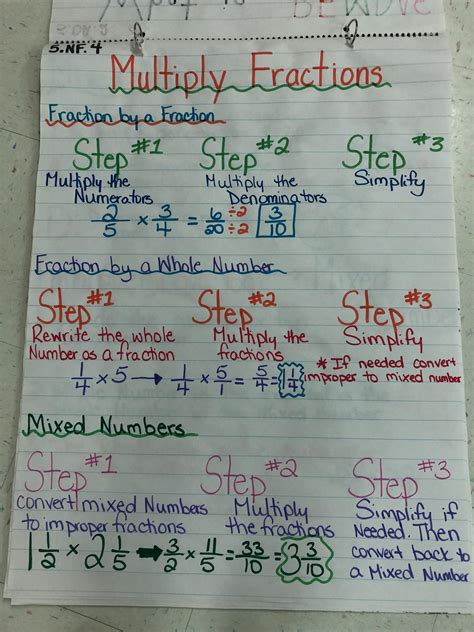 5.NF.4
Multiply Fractions
Fraction by a Fraction
Step #1 Step #2 Step #3
Multiply the Numerators Multiply the Denominators Simplify
2/5 × 3/4 = 6/20 ÷2/÷2 3/10
Fraction by a Whole Number
Step #1 Step #2 Step #3
Rewrite the whole Multiply the Simplify
Number as a fraction fractions
* If needed convert
improper to mixed number
1/4 × 5 → 1/4 × 5/1 = 5/4 = 1 1/4
Mixed Numbers
Step #1 Step #2 Step #3
convert mixed Numbers Multiply Simplify if
to improper fractions the fractions Needed. Then
convert back to
a Mixed Number
1 1/2 × 2 1/5 → 3/2 × 11/5 = 33/10 = 3 3/10